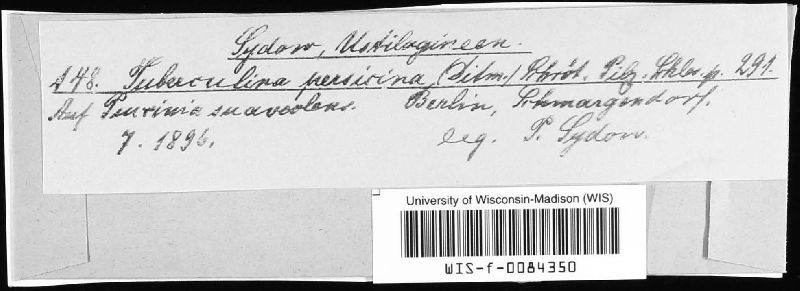 Sydow, Ustilagineen.
148. Tuberculina persicina (Ditm.) Schröt. Pilz. Schles. p. 291.
Auf Puccinia suaveolens. Berlin, Schmargendorf.
7. 1896. leg. P. Sydow.
University of Wisconsin-Madison (WIS)
WIS-f-0084350